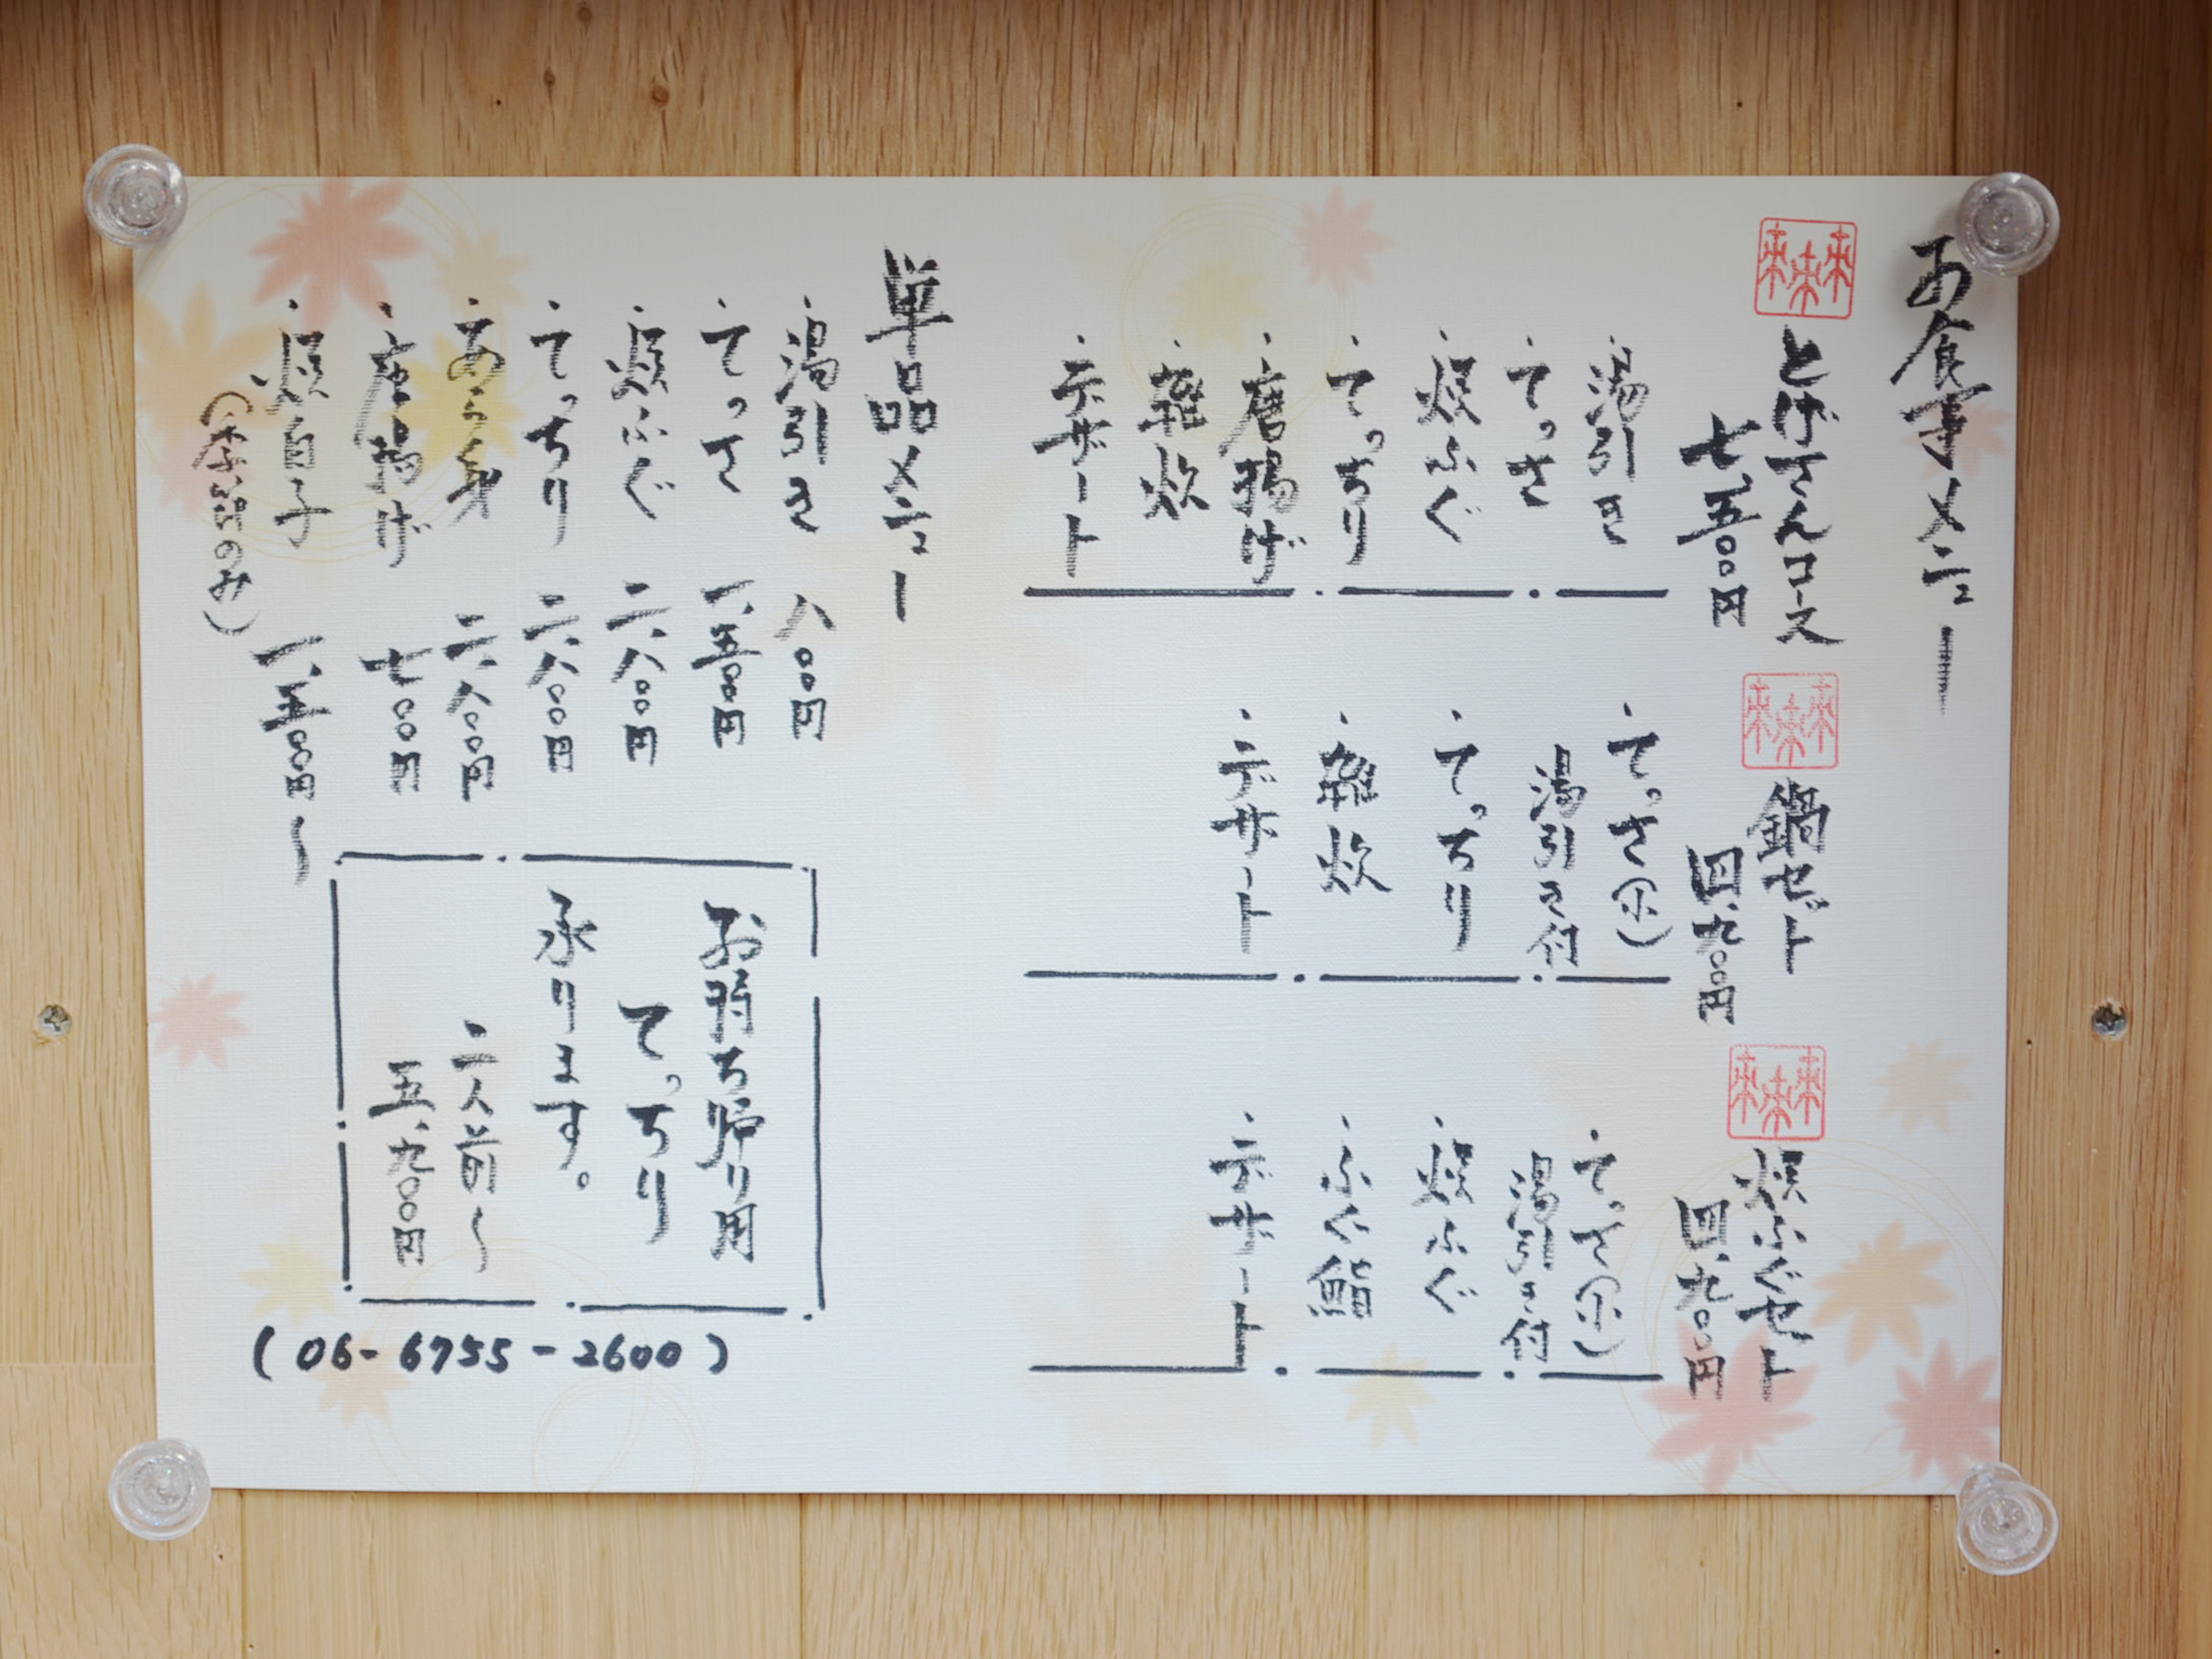 お食事メニュー
とげさんコース
七、五〇〇円
・湯引き
・てっさ
・焼ふぐ
・てっちり
・唐揚げ
・雑炊
・デザート
鍋セット
四、九〇〇円
・てっさ(小)
湯引き付
・てっちり
・雑炊
・デザート
焼ふぐセット
四、九〇〇円
・てっさ(小)
湯引き付
・焼ふぐ
・ふぐ鮨
・デザート
単品メニュー
・湯引き 八〇〇円
・てっさ 一、五〇〇円
・焼ふぐ 二、八〇〇円
・てっちり 二、八〇〇円
・あら身 二、八〇〇円
・唐揚げ 七〇〇円
・焼白子 一、五〇〇円〜
(冬季のみ)
お持ち帰り用
てっちり
承ります。
二人前〜
五、九〇〇円
(06-6755-2600)